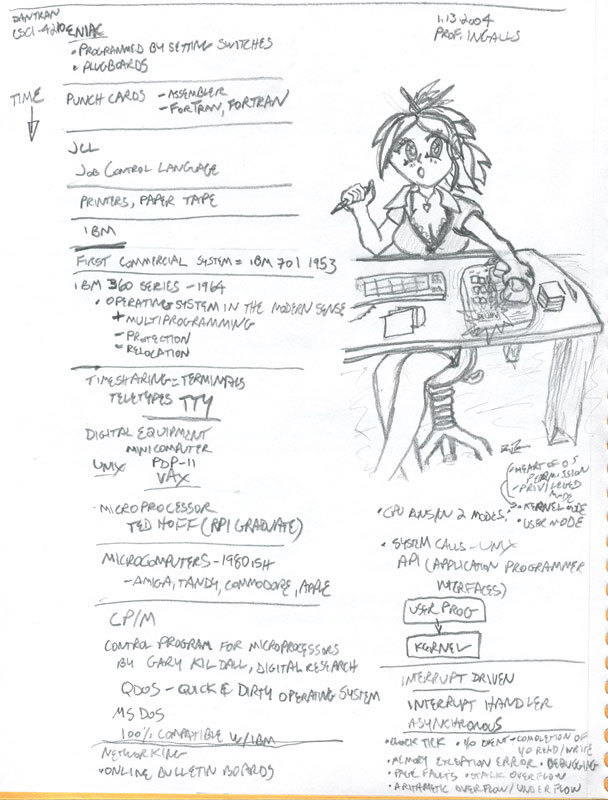 DAN TRAN
CSCI-4210
1.13.2004
PROF. INGALLS
ENIAC
• PROGRAMMED BY SETTING SWITCHES
• PLUGBOARDS
TIME
PUNCH CARDS - ASSEMBLER
- FORTRAN, FORTRAN
JCL
JOB CONTROL LANGUAGE
PRINTERS, PAPER TAPE
IBM
FIRST COMMERCIAL SYSTEM = IBM 701 1953
IBM 360 SERIES - 1964
• OPERATING SYSTEM IN THE MODERN SENSE
+ MULTIPROGRAMMING
- PROTECTION
- RELOCATION
TIMESHARING = TERMINALS
TELETYPES TTY
DIGITAL EQUIPMENT
MINICOMPUTER
UNIX PDP-11
VAX
MICROPROCESSOR
TED HOFF (RPI GRADUATE)
MICROCOMPUTERS - 1980ISH
- AMIGA, TANDY, COMMODORE, APPLE
CP/M
CONTROL PROGRAM FOR MICROPROCESSORS
BY GARY KILDALL, DIGITAL RESEARCH
QDOS - QUICK & DIRTY OPERATING SYSTEM
MS DOS
100% COMPATIBLE W/ IBM
NETWORKING
• ONLINE BULLETIN BOARDS
• HEART OF OS
PERMISSION
- PRIVILEGED
MODE
• KERNEL MODE
• USER MODE
• CPU RUNS IN 2 MODES:
• SYSTEM CALLS - UNIX
API (APPLICATION PROGRAMMER
INTERFACES)
USER PROG
KERNEL
INTERRUPT DRIVEN
INTERRUPT HANDLER
ASYNCHRONOUS
• CLOCK TICK • I/O EVENT - COMPLETION OF
I/O READ/WRITE
• MEMORY EXCEPTION ERROR • DEBUGGING
• PAGE FAULTS • STACK OVERFLOW
• ARITHMATIC OVERFLOW/UNDERFLOW